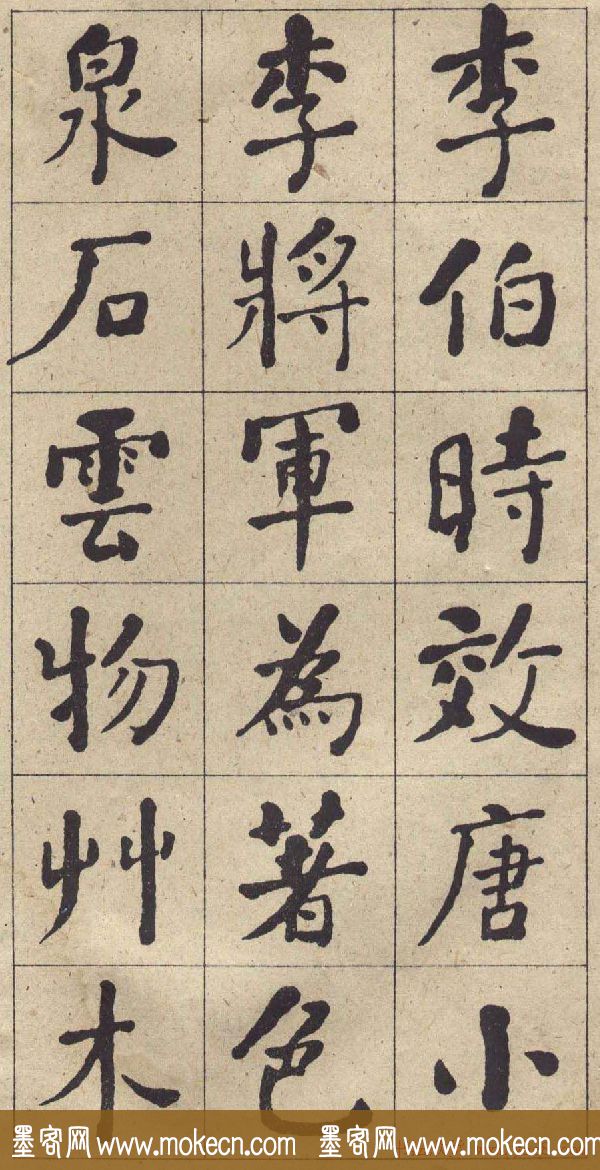 李伯時效唐小
李將軍為著色
泉石雲物艸木
墨客网 www.mokecn.com 墨客网 www.mokecn.com